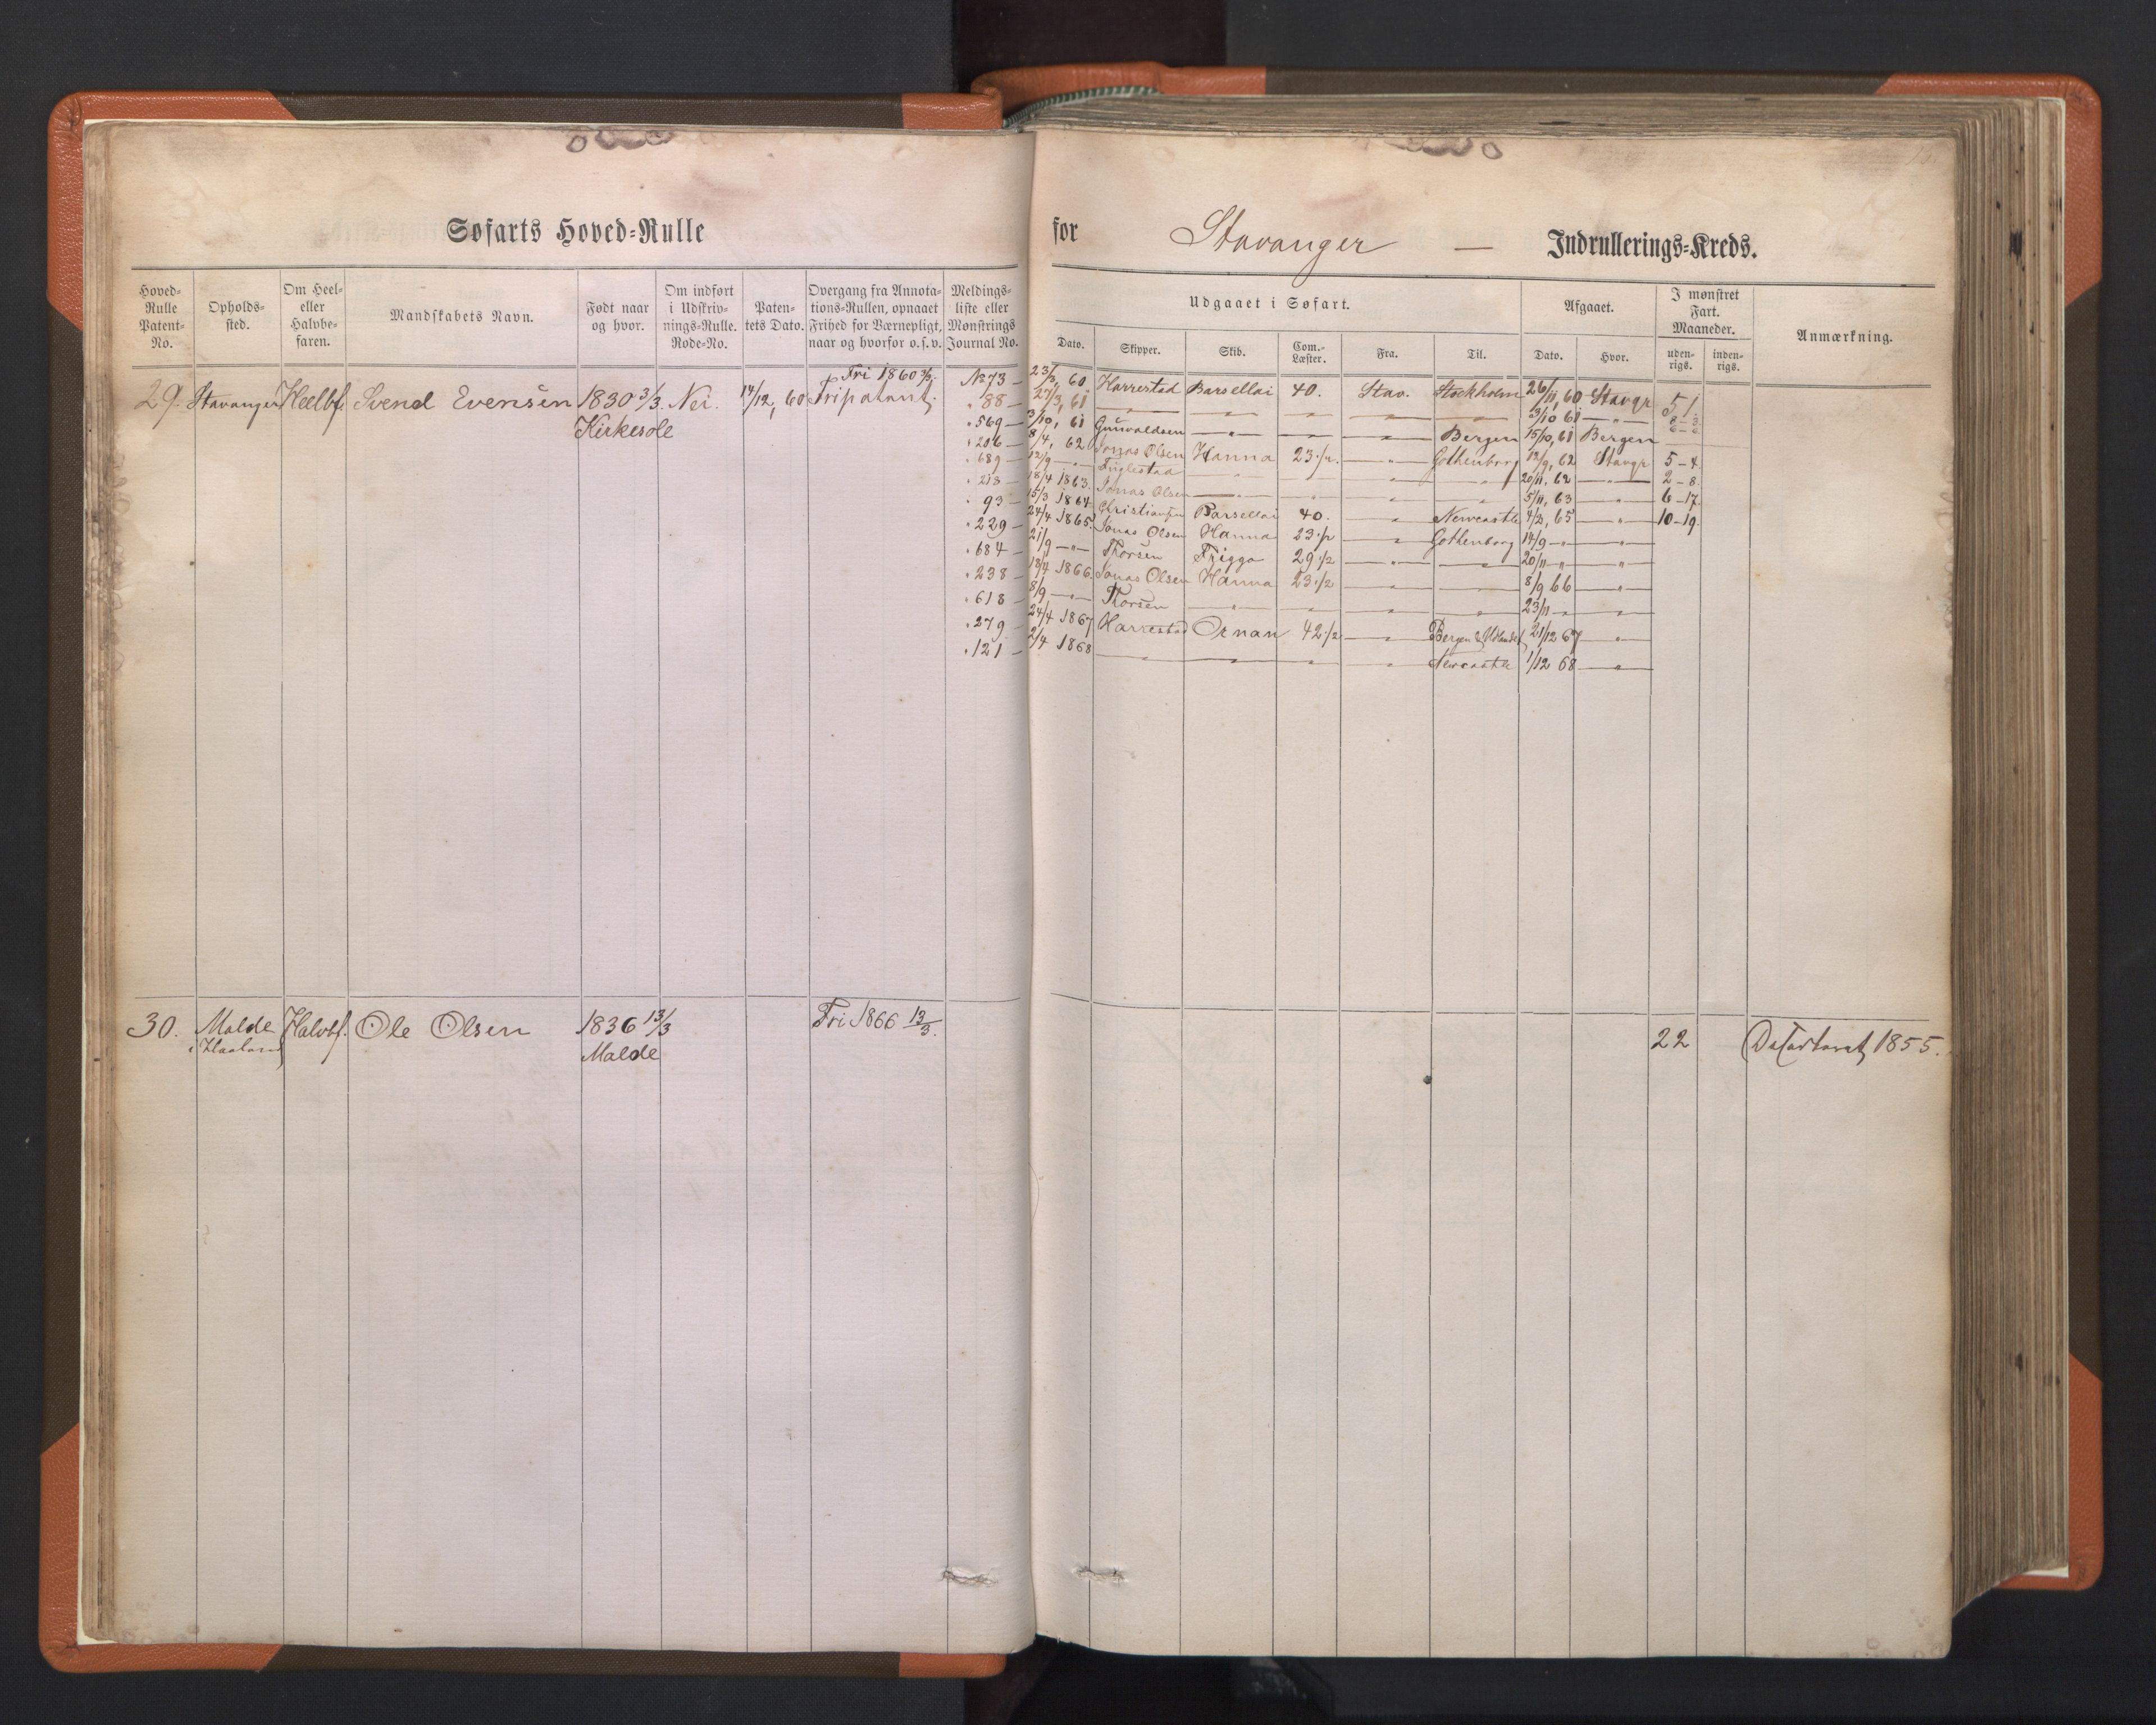 Søfarts Hoved-Rulle for Stavanger — Indrullerings-Kreds.
Hoved-Rulle Patent-No.
Opholds-sted.
Om Heel- eller Halvbe-faren.
Mandskabets Navn.
Født naar og hvor.
Om indført i Udskriv-nings-Rulle. Rode-No.
Paten-tets Dato.
Overgang fra Annota-tions-Rullen, opnaaet Frihed for Værnepligt, naar og hvorfor o.s.v.
Meldings-liste eller Mønstrings Journal No.
Udgaaet i Søfart.
Dato. Skipper. Skib. Com.-Læster. Fra. Til.
Afgaaet.
Dato. Hvor.
I mønstret Fart. Maaneder.
uden-rigs. inden-rigs.
Anmærkning.
Fri 1860
29. Stavanger Heelbf. Svend Evensen 1830 3/3. Nei. 14/12, 60 Fripatent.
Kirkesole
No 73 — 23/3, 60 Harrestad Barsellai 40. Stav. Stockholm 26/11, 60 Stavgr 51.
" 88 — 27/3, 61 — " — — " — — " — — " — 23/10 61 — " —
" 569 — 3/10, 61 Gunvaldsen — " — — " — — " — Bergen 15/10, 61 Bergen
" 206 — 8/4, 62 Jonas Olsen Hanna 23 1/2. — " — Gothenborg 12/9, 62 Stavgr 5-4.
" 689 — 12/9 — " — Fuglestad — " — — " — — " — — " — 20/11, 62 — " — 2-8.
" 213 — 18/4 1863. Jonas Olsen — " — — " — — " — — " — 5/11, 63 — " — 6-17.
" 93 — 15/3 1864. Christiansen Barsellai 40. — " — Newcastle 4/2, 65 — " — 10-19.
" 229 — 24/4 1865. Jonas Olsen Hanna 23 1/2 — " — Gothenborg 14/9 — " — — " —
" 684 — 21/9 — " — Thorsen Frigga 29 1/2 — " — — " — 20/11 — " — — " —
" 238 — 18/4 1866. Jonas Olsen Hanna 23 1/2 — " — — " — 8/9 66 — " —
" 618 — 8/9 — " — Thorsen — " — — " — — " — — " — 23/11 — " — — " —
" 279 — 24/4 1867 Harrestad Ornan 42 1/2 — " — Bergen & Udlandet 21/12 67 — " —
" 121 — 2/4 1868 — " — — " — — " — — " — Newcastle 1/12 68 — " —
30. Malde Halvbf. Ole Olsen 1836 13/3 Fri 1866 13/3. 22
i Haaland Malde
1855.